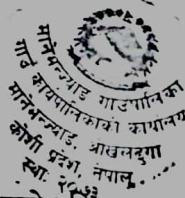 मानेभन्ज्याङ गाउँपालिका
गाउँ कार्यपालिकाको कार्यालय
मानेभन्ज्याङ, ओखलढुंगा
कोशी प्रदेश, नेपाल
स्था.